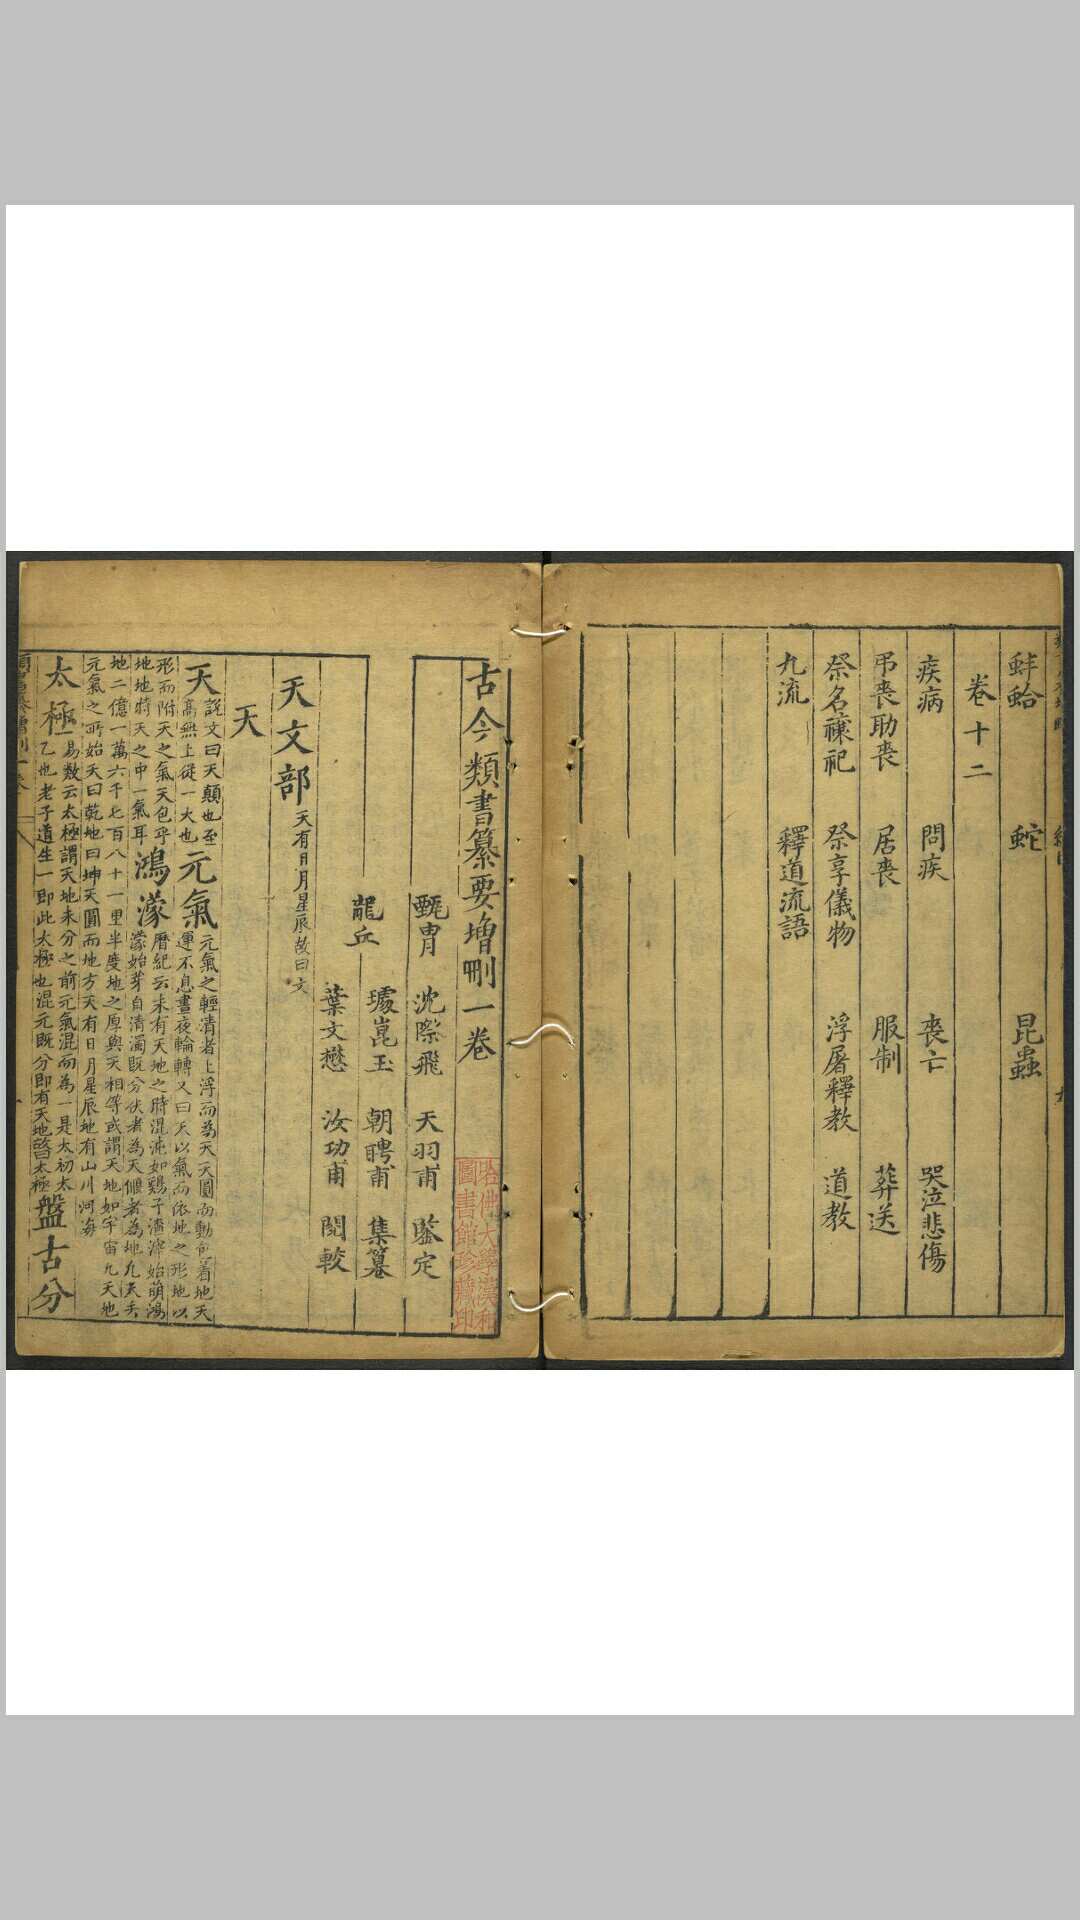 蚌蛤　蛇　昆蟲
卷十二
疾病　問疾　喪亡　哭泣悲傷
弔喪助喪　居喪　服制　葬送
祭名禳祀　祭享儀物　浮屠釋教　道教
九流　釋道流語
古今類書纂要增刪一卷
甄胄　沈際飛　天羽甫　鑒定
龍丘　璩崑玉　朝聘甫　集纂
葉文懋　汝功甫　閱較
天文部　天有日月星辰故曰文
天
天　說文曰天顛也至
高無上從一大也
元氣　元氣之輕清者上浮而為天天圓而動包着地天
運不息晝夜輪轉又曰天以氣而依地之形地以
形而附天之氣天包乎
地地特天之中一氣耳
鴻濛　曆紀云未有天地之時混沌如鷄子溟涬始萌鴻
濛始芽自清濁既分伏者為天偃者為地九天去
地二億一萬六千七百八十一里半度地之厚與天相等或謂天地如宇宙九天地
元氣之所始天曰乾地曰坤天圓而地方天有日月星辰地有山川河海
太極　易數云太極謂天地未分之前元氣混而為一是太初太
乙也老子道生一即此太極也混元既分即有天地故曰太極
盤古分
哈佛大學漢和
圖書館珍藏印